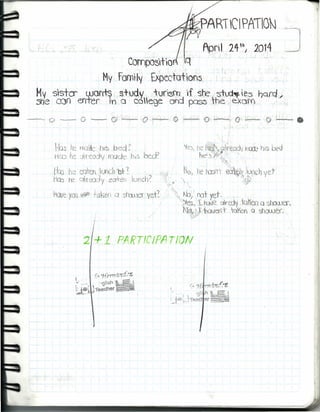 PARTICIPATION
April 24th, 2014
Composition
My Family Expectations
My sister wants study turism if she studies hard,
she can enter in a college and pass the exam.
Has he made his bed?
Has he already made his bed?
Has he eaten lunch yet?
Has he already eaten lunch?
Have you taken a shower yet?
Yes, he has already made his bed
No, he hasn't eaten lunch yet
No, not yet.
Yes, I have already taken a shower.
No, I haven't taken a shower.
2 + 1 PARTICIPATION